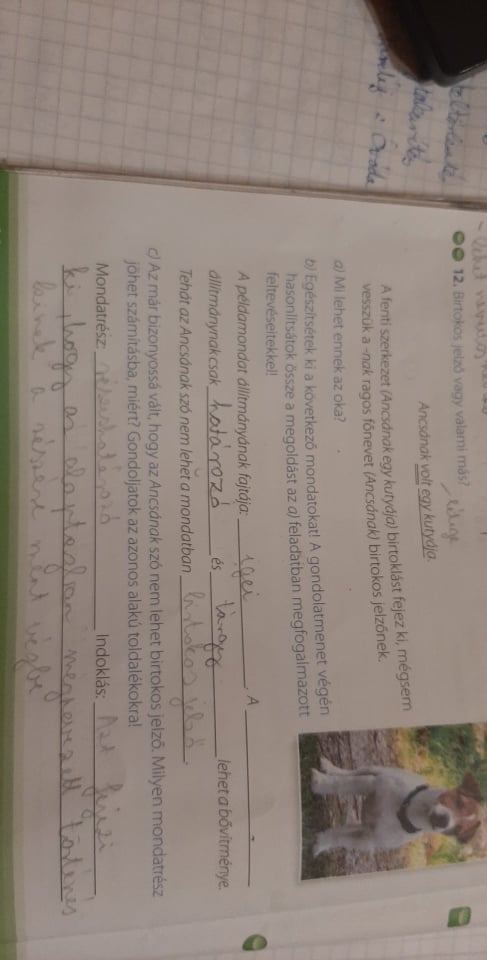 12. Birtokos jelző vagy valami más?
Ancsának volt egy kutyája.
A fenti szerkezet (Ancsának egy kutyája) birtoklást fejez ki, mégsem
vesszük a -nak ragos főnevet (Ancsának) birtokos jelzőnek.
a) Mi lehet ennek az oka?
b) Egészítsétek ki a következő mondatokat! A gondolatmenet végén
hasonlítsátok össze a megoldást az a) feladatban megfogalmazott
feltevéseitekkel!
A példamondat állítmányának fajtája: igei. A
állítmánynak csak határozó és tárgy lehet a bővítménye.
Tehát az Ancsának szó nem lehet a mondatban birtokos jelző.
c) Az már bizonyossá vált, hogy az Ancsának szó nem lehet birtokos jelző. Milyen mondatrész
jöhet számításba, miért? Gondoljatok az azonos alakú toldalékokra!
Mondatrész: részeshatározó Indoklás: Azt fejezi
ki, hogy az alaptagban megnevezett történés
kinek a részére ment végbe